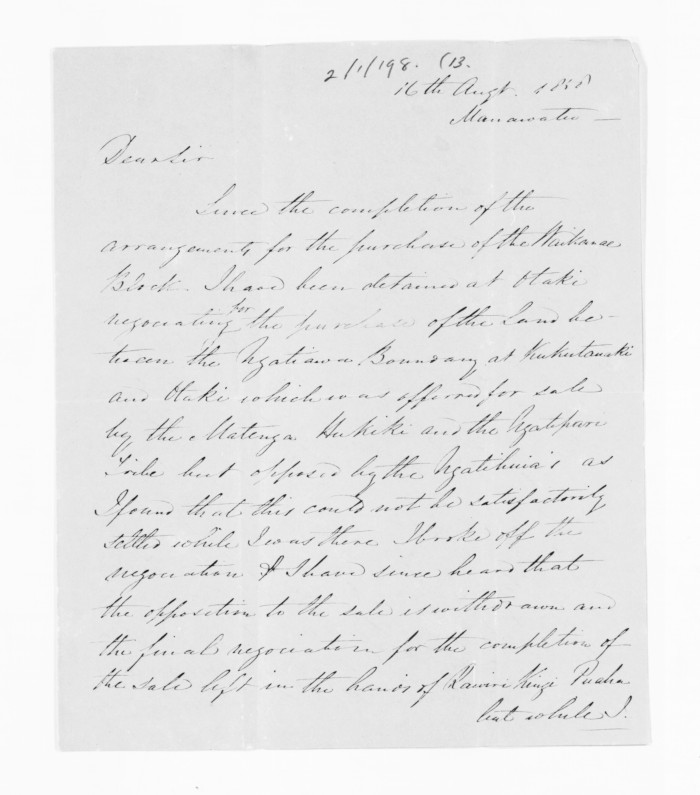 2/1/198. (13.
16th Augt. 1858
Manawatu —
Dear Sir
Since the completion of the
arrangements for the purchase of the Waikanae
Block. I have been detained at Otaki
negociating for the purchase of the Land be-
tween the Ngatiawa Boundary at Kukutauaki
and Otaki which was offered for sale
by the Matenga Hukiki and the Ngatipare
Tribe but opposed by the Ngatihuia's as
I found that this could not be satisfactorily
settled while I was there I broke off the
negociation & I have since heard that
the opposition to the sale is withdrawn and
the final negociation for the completion of
the sale left in the hands of Rawiri Kingi Puaha
but while I.